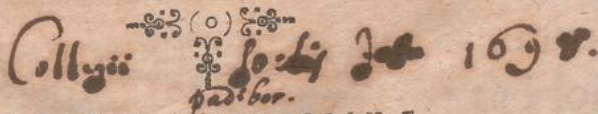 Collegii Soctis Jesu 1698.
padibor.